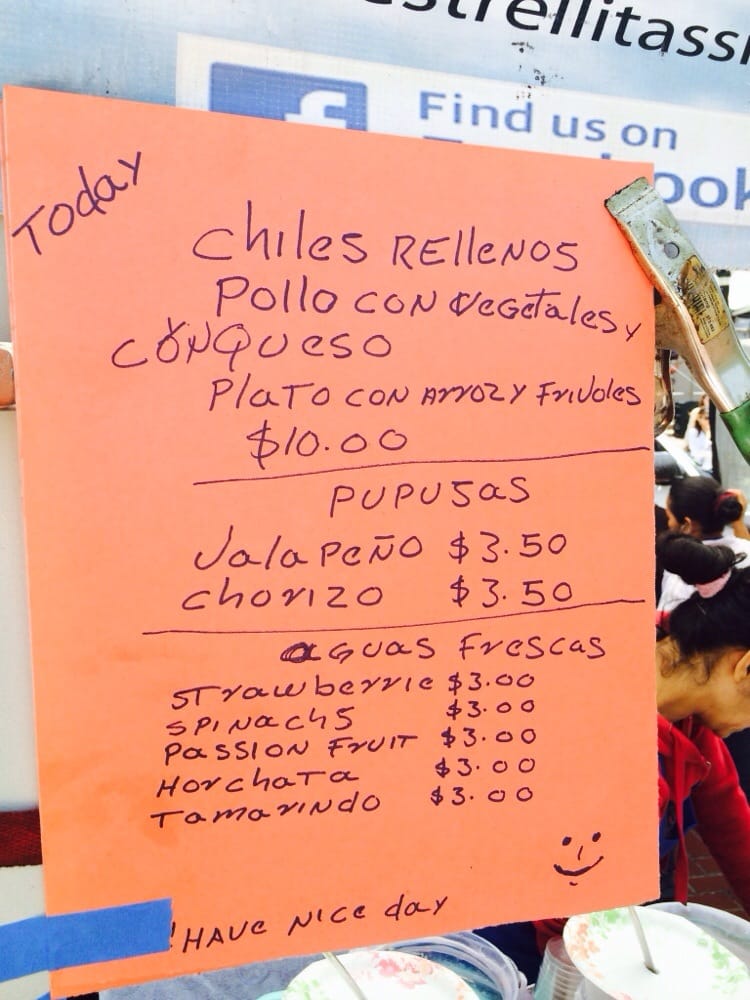 estrellitass
Find us on
Today
Chiles RELLENOS
Pollo CON vegetales y
CONQUESO
PlaTO CON Arroz y Frivoles
$10.00
PUPUSAS
Jalapeño $3.50
chorizo $3.50
aguas Frescas
STrawberrie $3.00
SPINachs $3.00
PASSION FRUIT $3.00
Horchata $3.00
Tamarindo $3.00
!HAVE NICE day